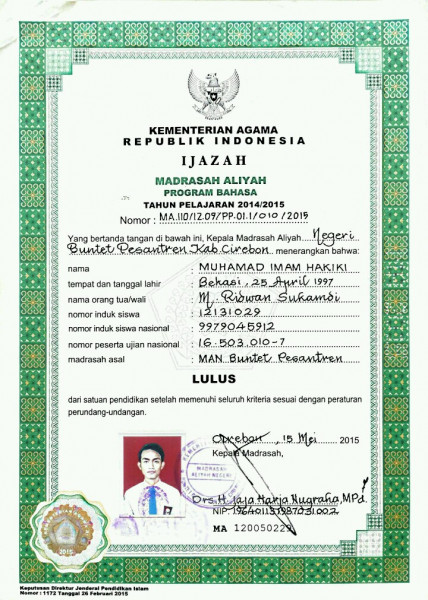 KEMENTERIAN AGAMA
REPUBLIK INDONESIA
IJAZAH
MADRASAH ALIYAH
PROGRAM BAHASA
TAHUN PELAJARAN 2014/2015
Nomor : MA.110/12.09/PP.01.1/010/2015
Yang bertanda tangan di bawah ini, Kepala Madrasah Aliyah Negeri
Buntet Pesantren Kab. Cirebon menerangkan bahwa:
nama : MUHAMAD IMAM HAKIKI
tempat dan tanggal lahir : Bekasi, 25 April 1997
nama orang tua/wali : M. Ridwan Suhamdi
nomor induk siswa : 12131029
nomor induk siswa nasional : 9979045912
nomor peserta ujian nasional : 16.503.010-7
madrasah asal : MAN Buntet Pesantren
LULUS
dari satuan pendidikan setelah memenuhi seluruh kriteria sesuai dengan peraturan
perundang-undangan.
Cirebon, 15 Mei 2015
Kepala Madrasah,
MADRASAH
ALIYAH NEGERI
Drs. H. Jaja Harja Nugraha, MPd.
NIP. 196401131987031002
MA 120050229
2015
Keputusan Direktur Jenderal Pendidikan Islam
Nomor : 1172 Tanggal 26 Februari 2015